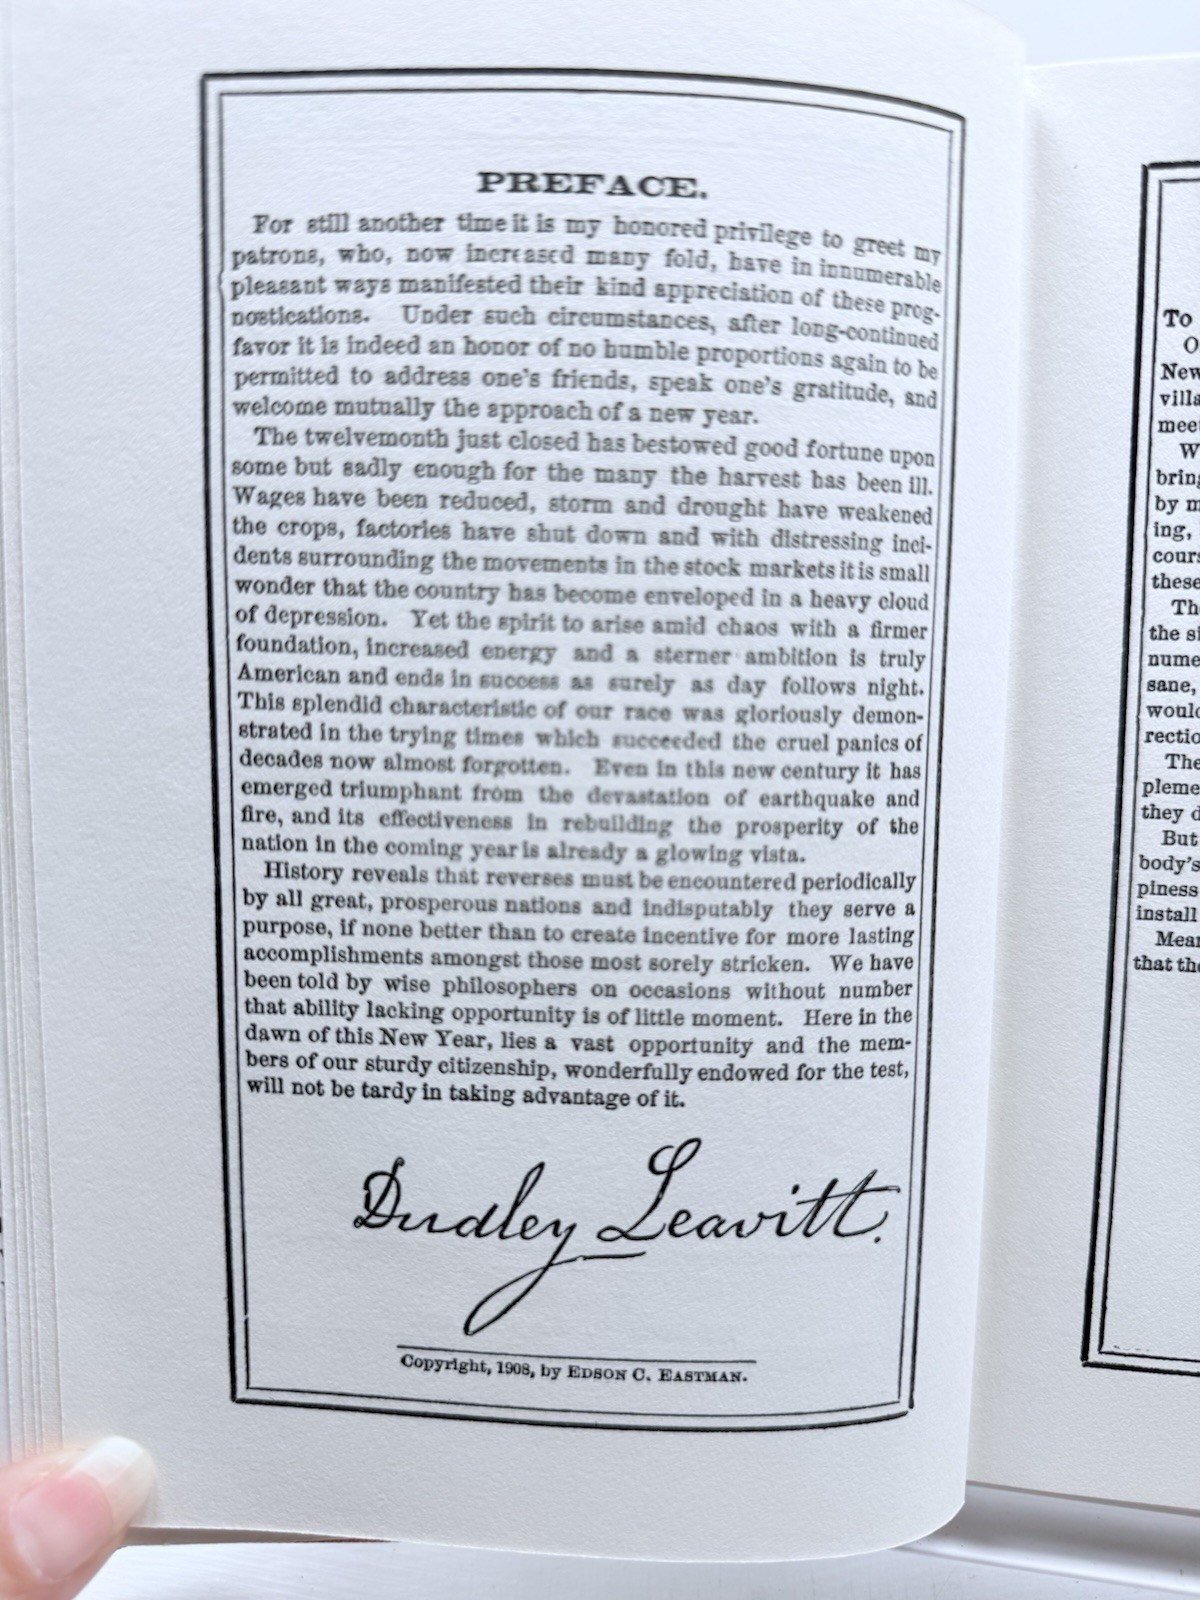 PREFACE.
For still another time it is my honored privilege to greet my
patrons, who, now increased many fold, have in innumerable
pleasant ways manifested their kind appreciation of these prog-
nostications. Under such circumstances, after long-continued
favor it is indeed an honor of no humble proportions again to be
permitted to address one's friends, speak one's gratitude, and
welcome mutually the approach of a new year.
The twelvemonth just closed has bestowed good fortune upon
some but sadly enough for the many the harvest has been ill.
Wages have been reduced, storm and drought have weakened
the crops, factories have shut down and with distressing inci-
dents surrounding the movements in the stock markets it is small
wonder that the country has become enveloped in a heavy cloud
of depression. Yet the spirit to arise amid chaos with a firmer
foundation, increased energy and a sterner ambition is truly
American and ends in success as surely as day follows night.
This splendid characteristic of our race was gloriously demon-
strated in the trying times which succeeded the cruel panics of
decades now almost forgotten. Even in this new century it has
emerged triumphant from the devastation of earthquake and
fire, and its effectiveness in rebuilding the prosperity of the
nation in the coming year is already a glowing vista.
History reveals that reverses must be encountered periodically
by all great, prosperous nations and indisputably they serve a
purpose, if none better than to create incentive for more lasting
accomplishments amongst those most sorely stricken. We have
been told by wise philosophers on occasions without number
that ability lacking opportunity is of little moment. Here in the
dawn of this New Year, lies a vast opportunity and the mem-
bers of our sturdy citizenship, wonderfully endowed for the test,
will not be tardy in taking advantage of it.
Dudley Leavitt.
Copyright, 1908, by EDSON C. EASTMAN.
To
O
New
villa
meet
W
bring
by m
ing,
cours
these
Th
the si
nume
sane,
would
rectio
The
pleme
they d
But
body's
piness
install
Mean
that the